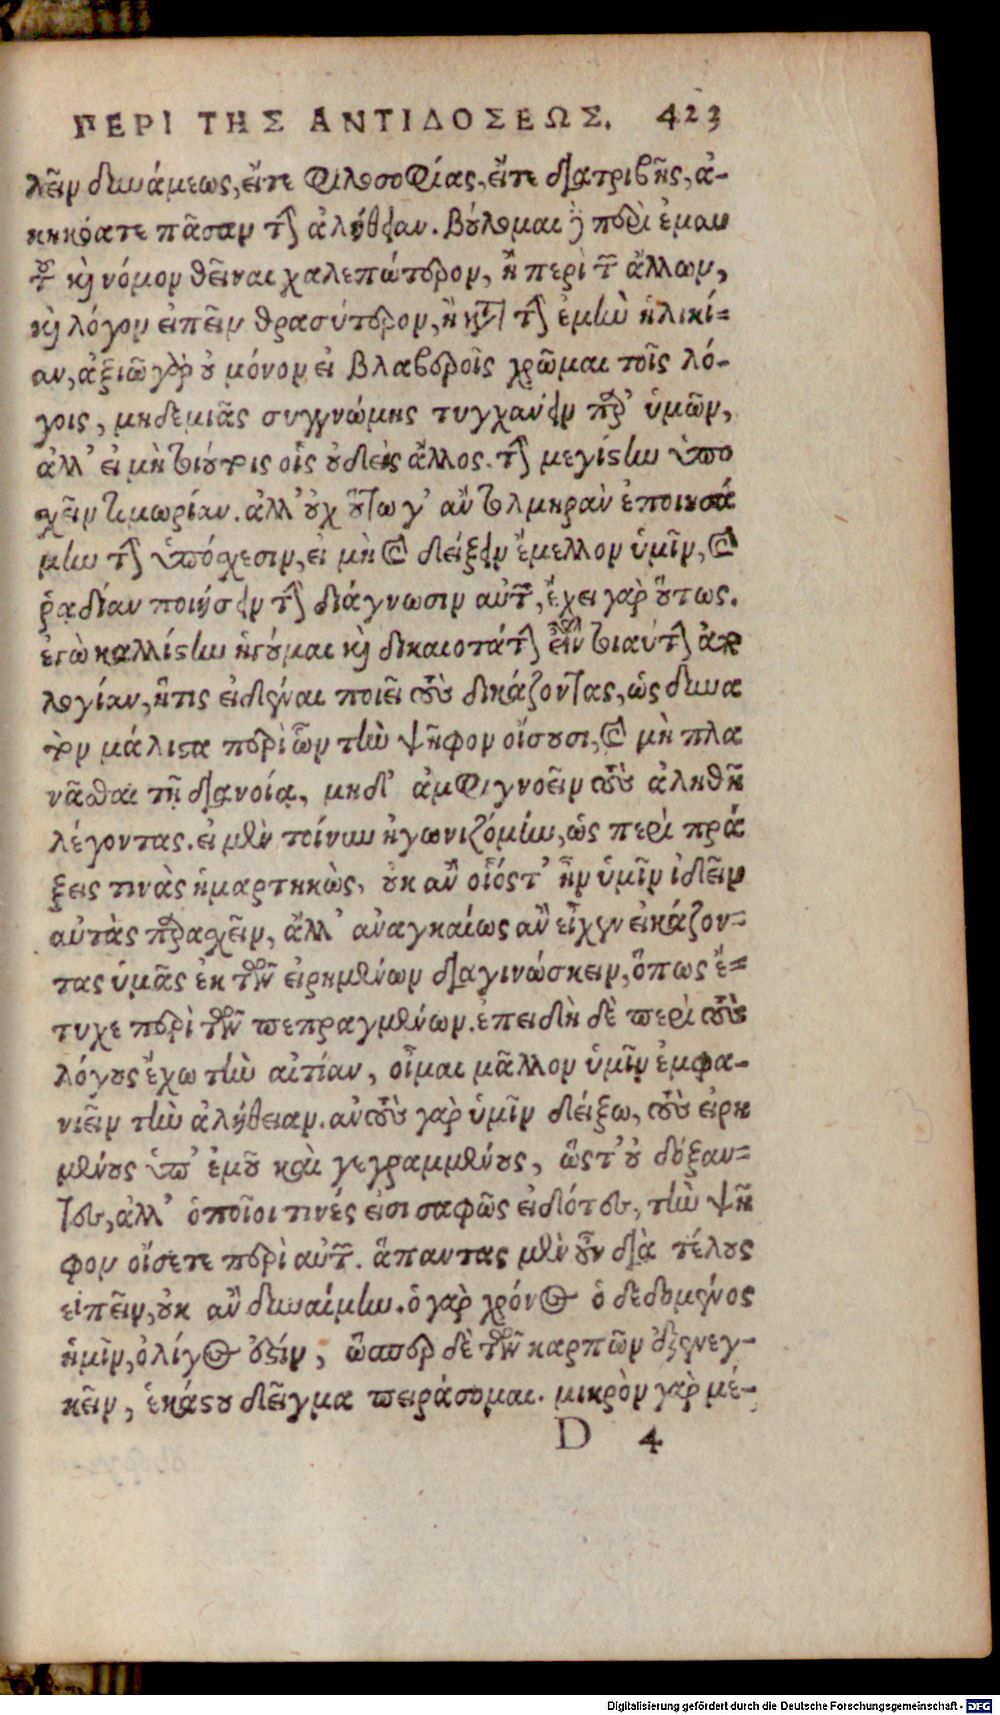 ΠΕΡΙ ΤΗΣ ΑΝΤΙΔΟΣΕΩΣ. 423
λεῖν δυνάμεως, εἴτε φιλοσοφίας, εἴτε διατριβῆς, ἀ-
κηκόατε πᾶσαν τὴν ἀλήθειαν. βούλομαι δὲ περὶ ἐμαυ
τοῦ καὶ νόμον θεῖναι χαλεπώτερον, ἢ περὶ τῶν ἄλλων,
καὶ λόγον εἰπεῖν θρασύτερον, ἢ κατὰ τὴν ἐμὴν ἡλικί=
αν, ἀξιῶ γὰρ οὐ μόνον εἰ βλαβεροῖς χρῶμαι τοῖς λό-
γοις, μηδεμιᾶς συγγνώμης τυγχάνειν παρ' ὑμῶν,
ἀλλ' εἰ μὴ τοιούτοις οἷς οὐδεὶς ἄλλος. τὴν μεγίστην ὑπο
σχεῖν τιμωρίαν. ἀλλ' οὐχ οὕτω γ' ἂν τολμηρὰν ἐποιησά
μην τὴν ὑπόσχεσιν, εἰ μὴ καὶ δείξειν ἔμελλον ὑμῖν, καὶ
ῥᾳδίαν ποιήσειν τὴν διάγνωσιν αὐτῶν, ἔχει γὰρ οὕτως.
ἐγὼ καλλίστην ἡγοῦμαι καὶ δικαιοτάτην εἶναι τοιαύτην ἀπο
λογίαν, ἥτις εἰδέναι ποιεῖ τοὺς δικάζοντας, ὡς δύνα
τον μάλιστα περὶ ὧν τὴν ψῆφον οἴσουσι, καὶ μὴ πλα
νᾶσθαι τῇ διανοίᾳ, μηδ' ἀμφιγνοεῖν τοὺς ἀληθῆ
λέγοντας. εἰ μὲν τοίνυν ἠγωνιζόμην, ὡς περὶ πρά
ξεις τινὰς ἡμαρτηκὼς, οὐκ ἂν οἷός τ' ἦν ὑμῖν ἰδεῖν
αὐτὰς παρασχεῖν, ἀλλ' ἀναγκαίως ἂν εἶχεν εἰκάζον=
τας ὑμᾶς ἐκ τῶν εἰρημένων διαγινώσκειν, ὅπως ἔ=
τυχε περὶ τῶν πεπραγμένων. ἐπειδὴ δὲ περὶ τοὺς
λόγους ἔχω τὴν αἰτίαν, οἶμαι μᾶλλον ὑμῖν ἐμφα-
νιεῖν τὴν ἀλήθειαν. αὐτοὺς γὰρ ὑμῖν δείξω, τοὺς εἰρη
μένους ὑπ' ἐμοῦ καὶ γεγραμμένους, ὥστ' οὐ δόξαν=
τες, ἀλλ' ὁποῖοι τινές εἰσι σαφῶς εἰδότες, τὴν ψῆ
φον οἴσετε περὶ αὐτῶν. ἅπαντας μὲν οὖν διὰ τέλους
εἰπεῖν, οὐκ ἂν δυναίμην. ὁ γὰρ χρόνος ὁ δεδομένος
ἡμῖν, ὀλίγος ἐστίν, ὥσπερ δὲ τῶν καρπῶν ἐξενεγ-
κεῖν, ἑκάστου δεῖγμα πειράσομαι. μικρὸν γὰρ μέ-
D 4
Digitalisierung gefördert durch die Deutsche Forschungsgemeinschaft - DFG